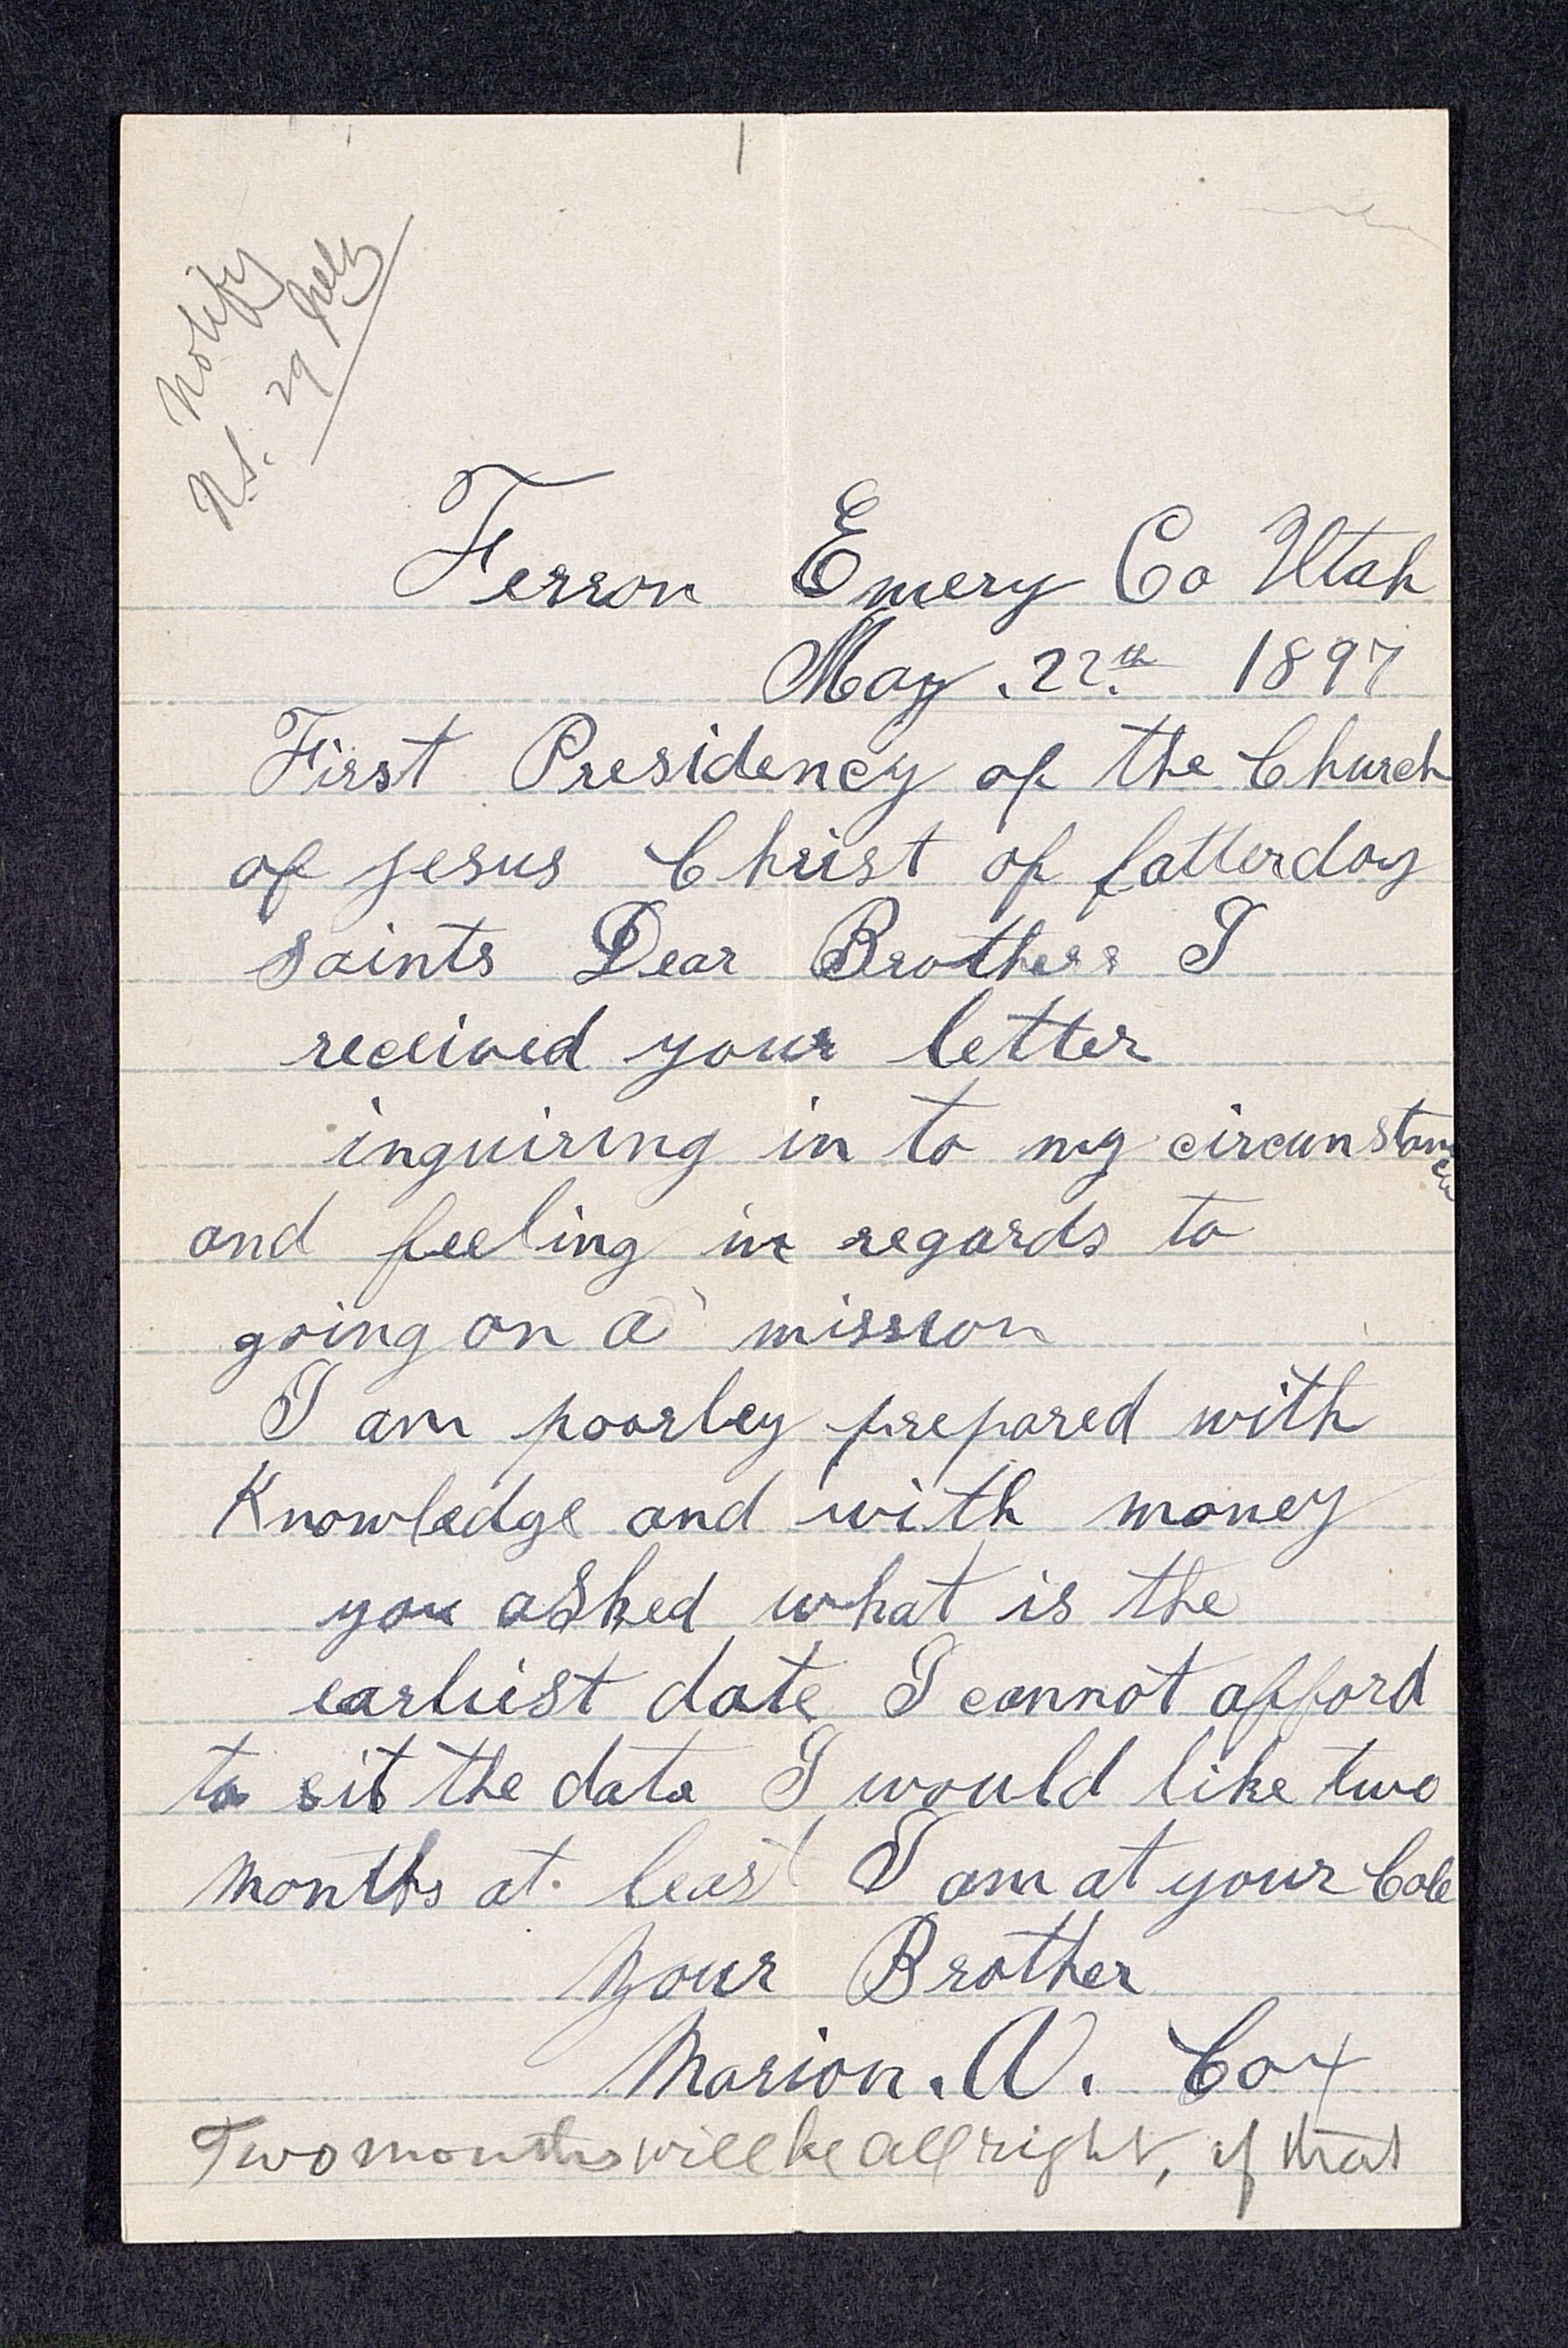 Notify
N.S. 29 July
Ferron Emery Co Utah
May. 22.th 1897
First Presidency of the Church
of jesus Christ of latterday
saints Dear Brothers I
received your letter
inquiring in to my circunstances
and feeling in regards to
going on a mission
I am poorley prepared with
Knowledge and with money
you asked what is the
earliest date I cannot afford
to sit the data I would like two
months at least I am at your Cole
Your Brother
Marion. W. Cox
Two months will be all right, if that